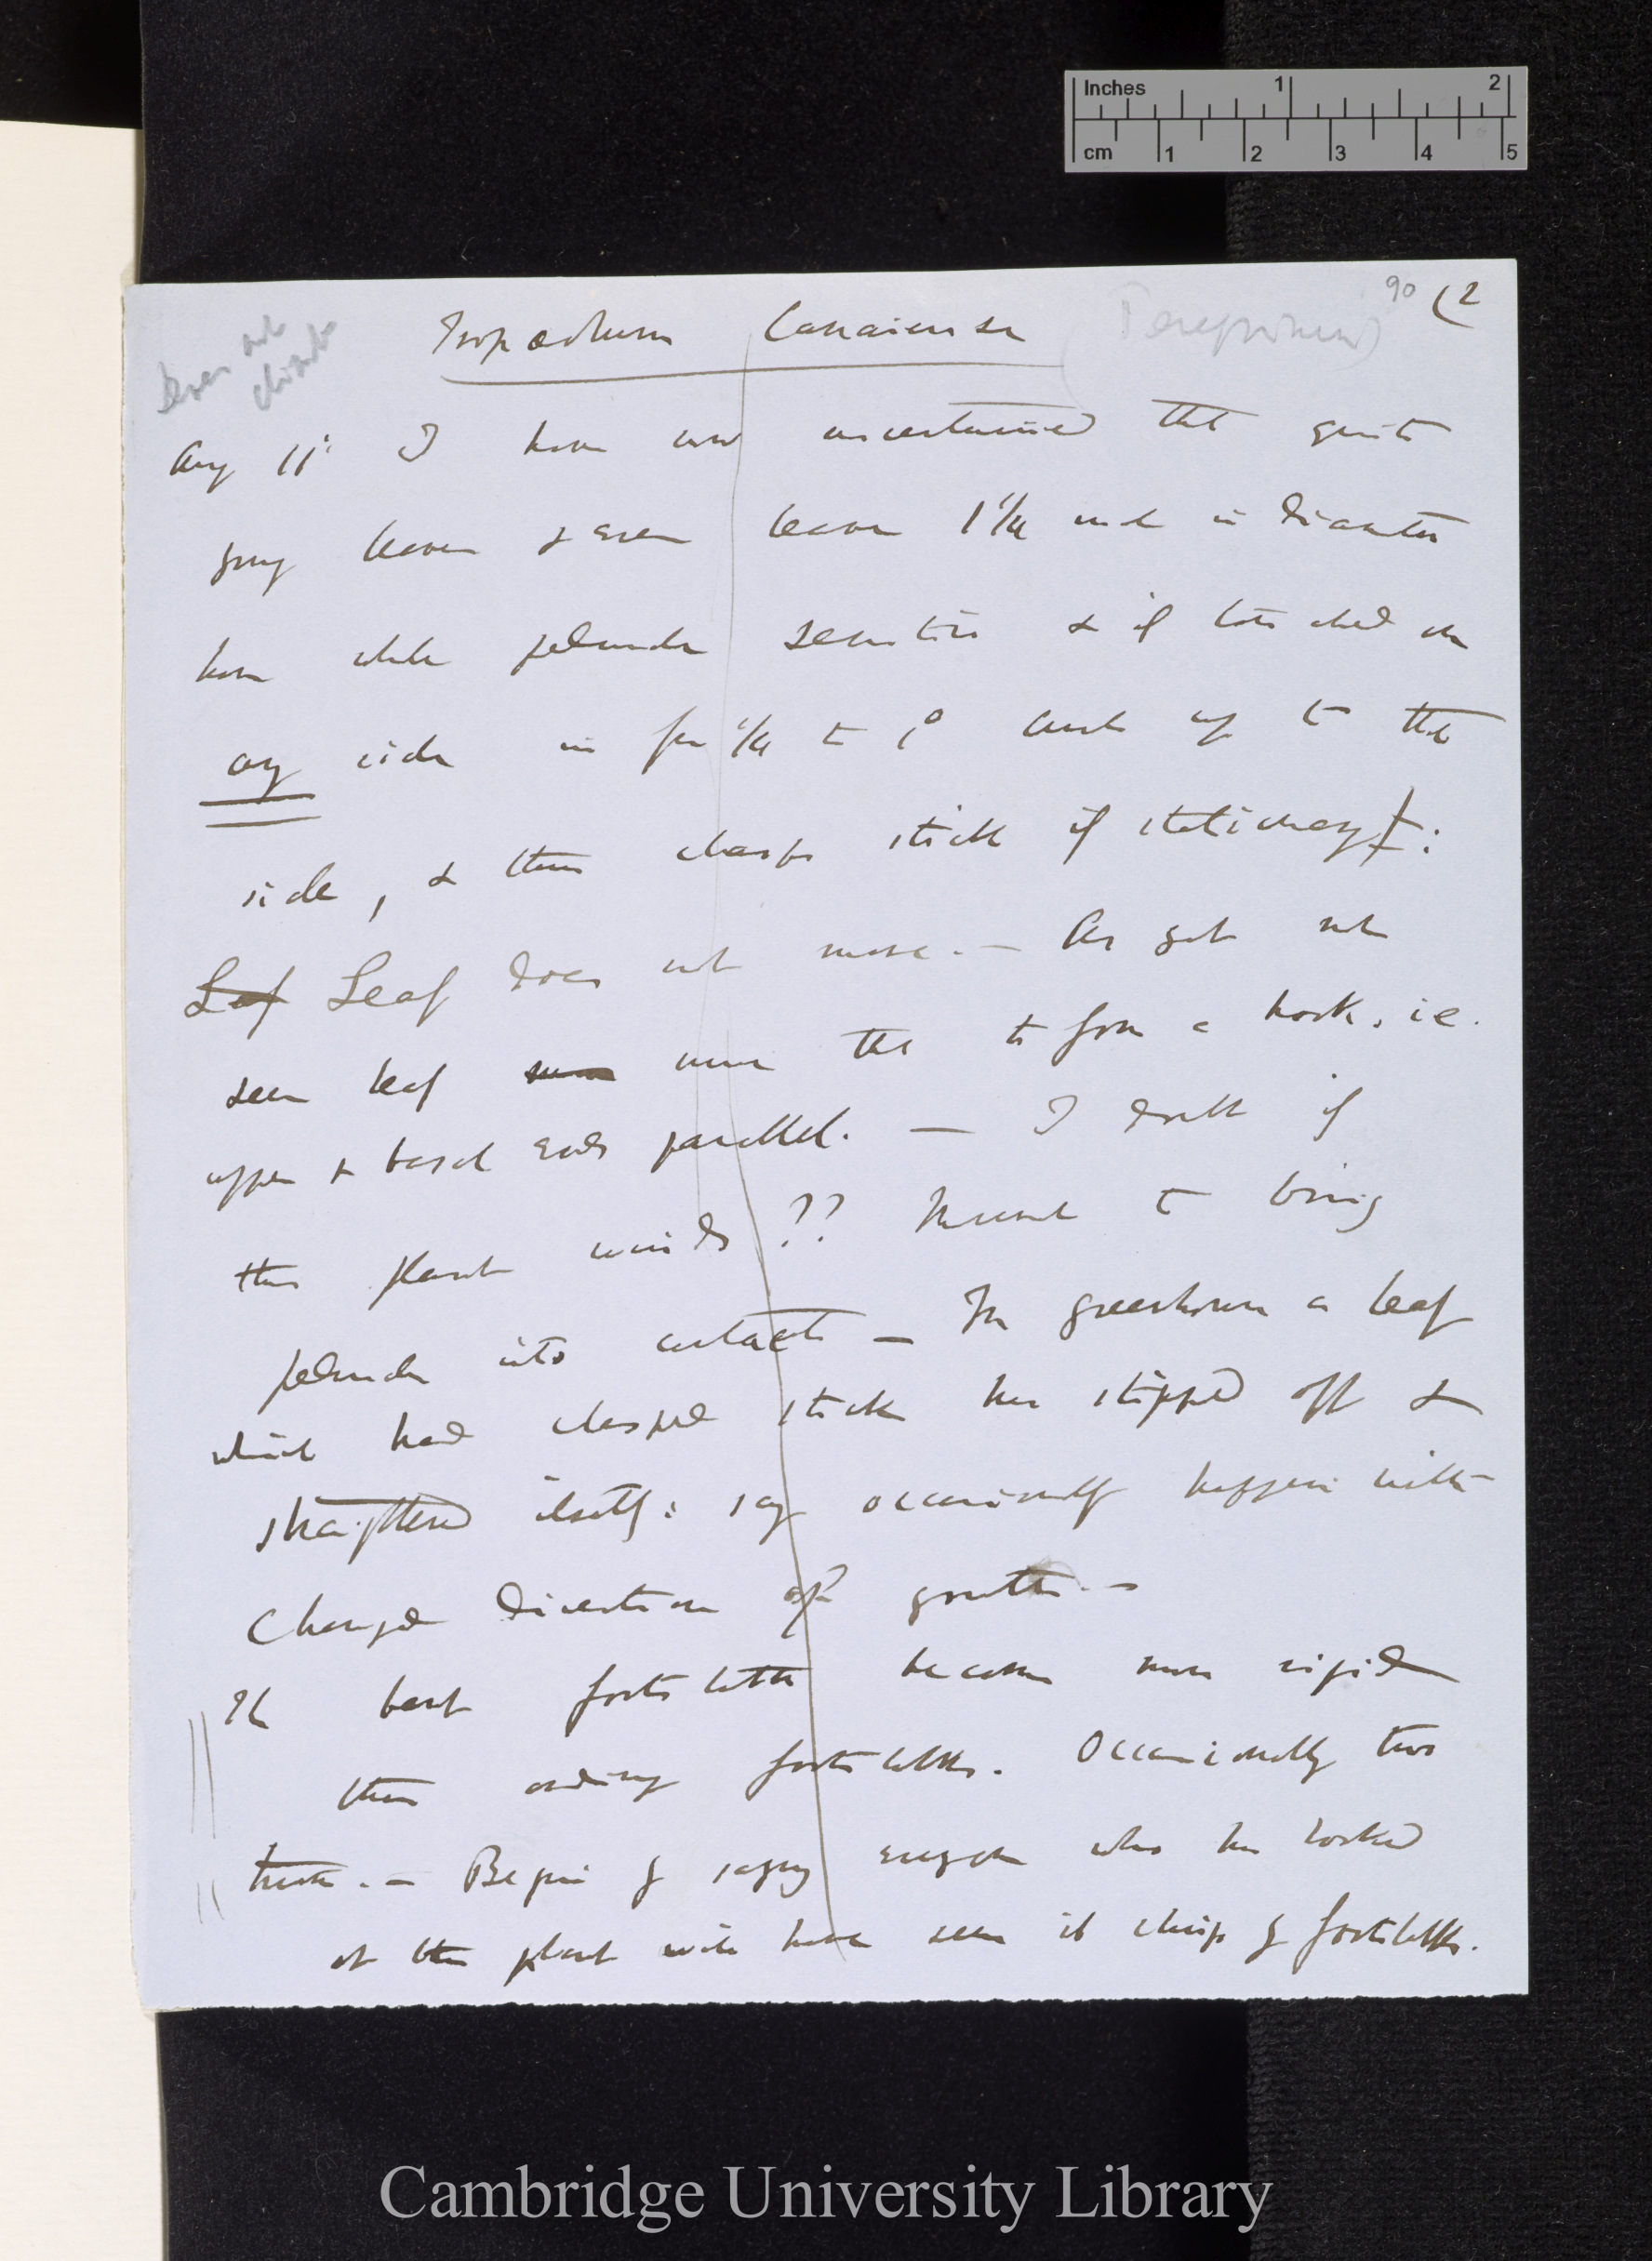 Inches 1 2
cm 1 2 3 4 5
90 (2
Tropæolum Canariense (Peregrinum)
Aug 11' I have now ascertained that quite
young leaves & even leaves 1 1/4 inch in diameter
have whole peduncle sensitive & if touched on
any side in from 1/4 to 1° curls up to that
side, & then clasps stick if stationary:
Leaf Leaf does not move. — As yet not
seen leaf move than to form a hook, i.e.
upper & basal ends parallel. — I doubt if
this plant winds ?? Movement to bring
peduncle into contact — In greenhouse a leaf
which had clasped stick has slipped off &
straightened itself: say occasionally happens with
changed direction of growth. —
The bent footstalks become more rigid
than ordinary footstalks. Occasionally two
twists. — Begin by saying everyone who has looked
at the plant will have seen it clings by footstalks.
Cambridge University Library